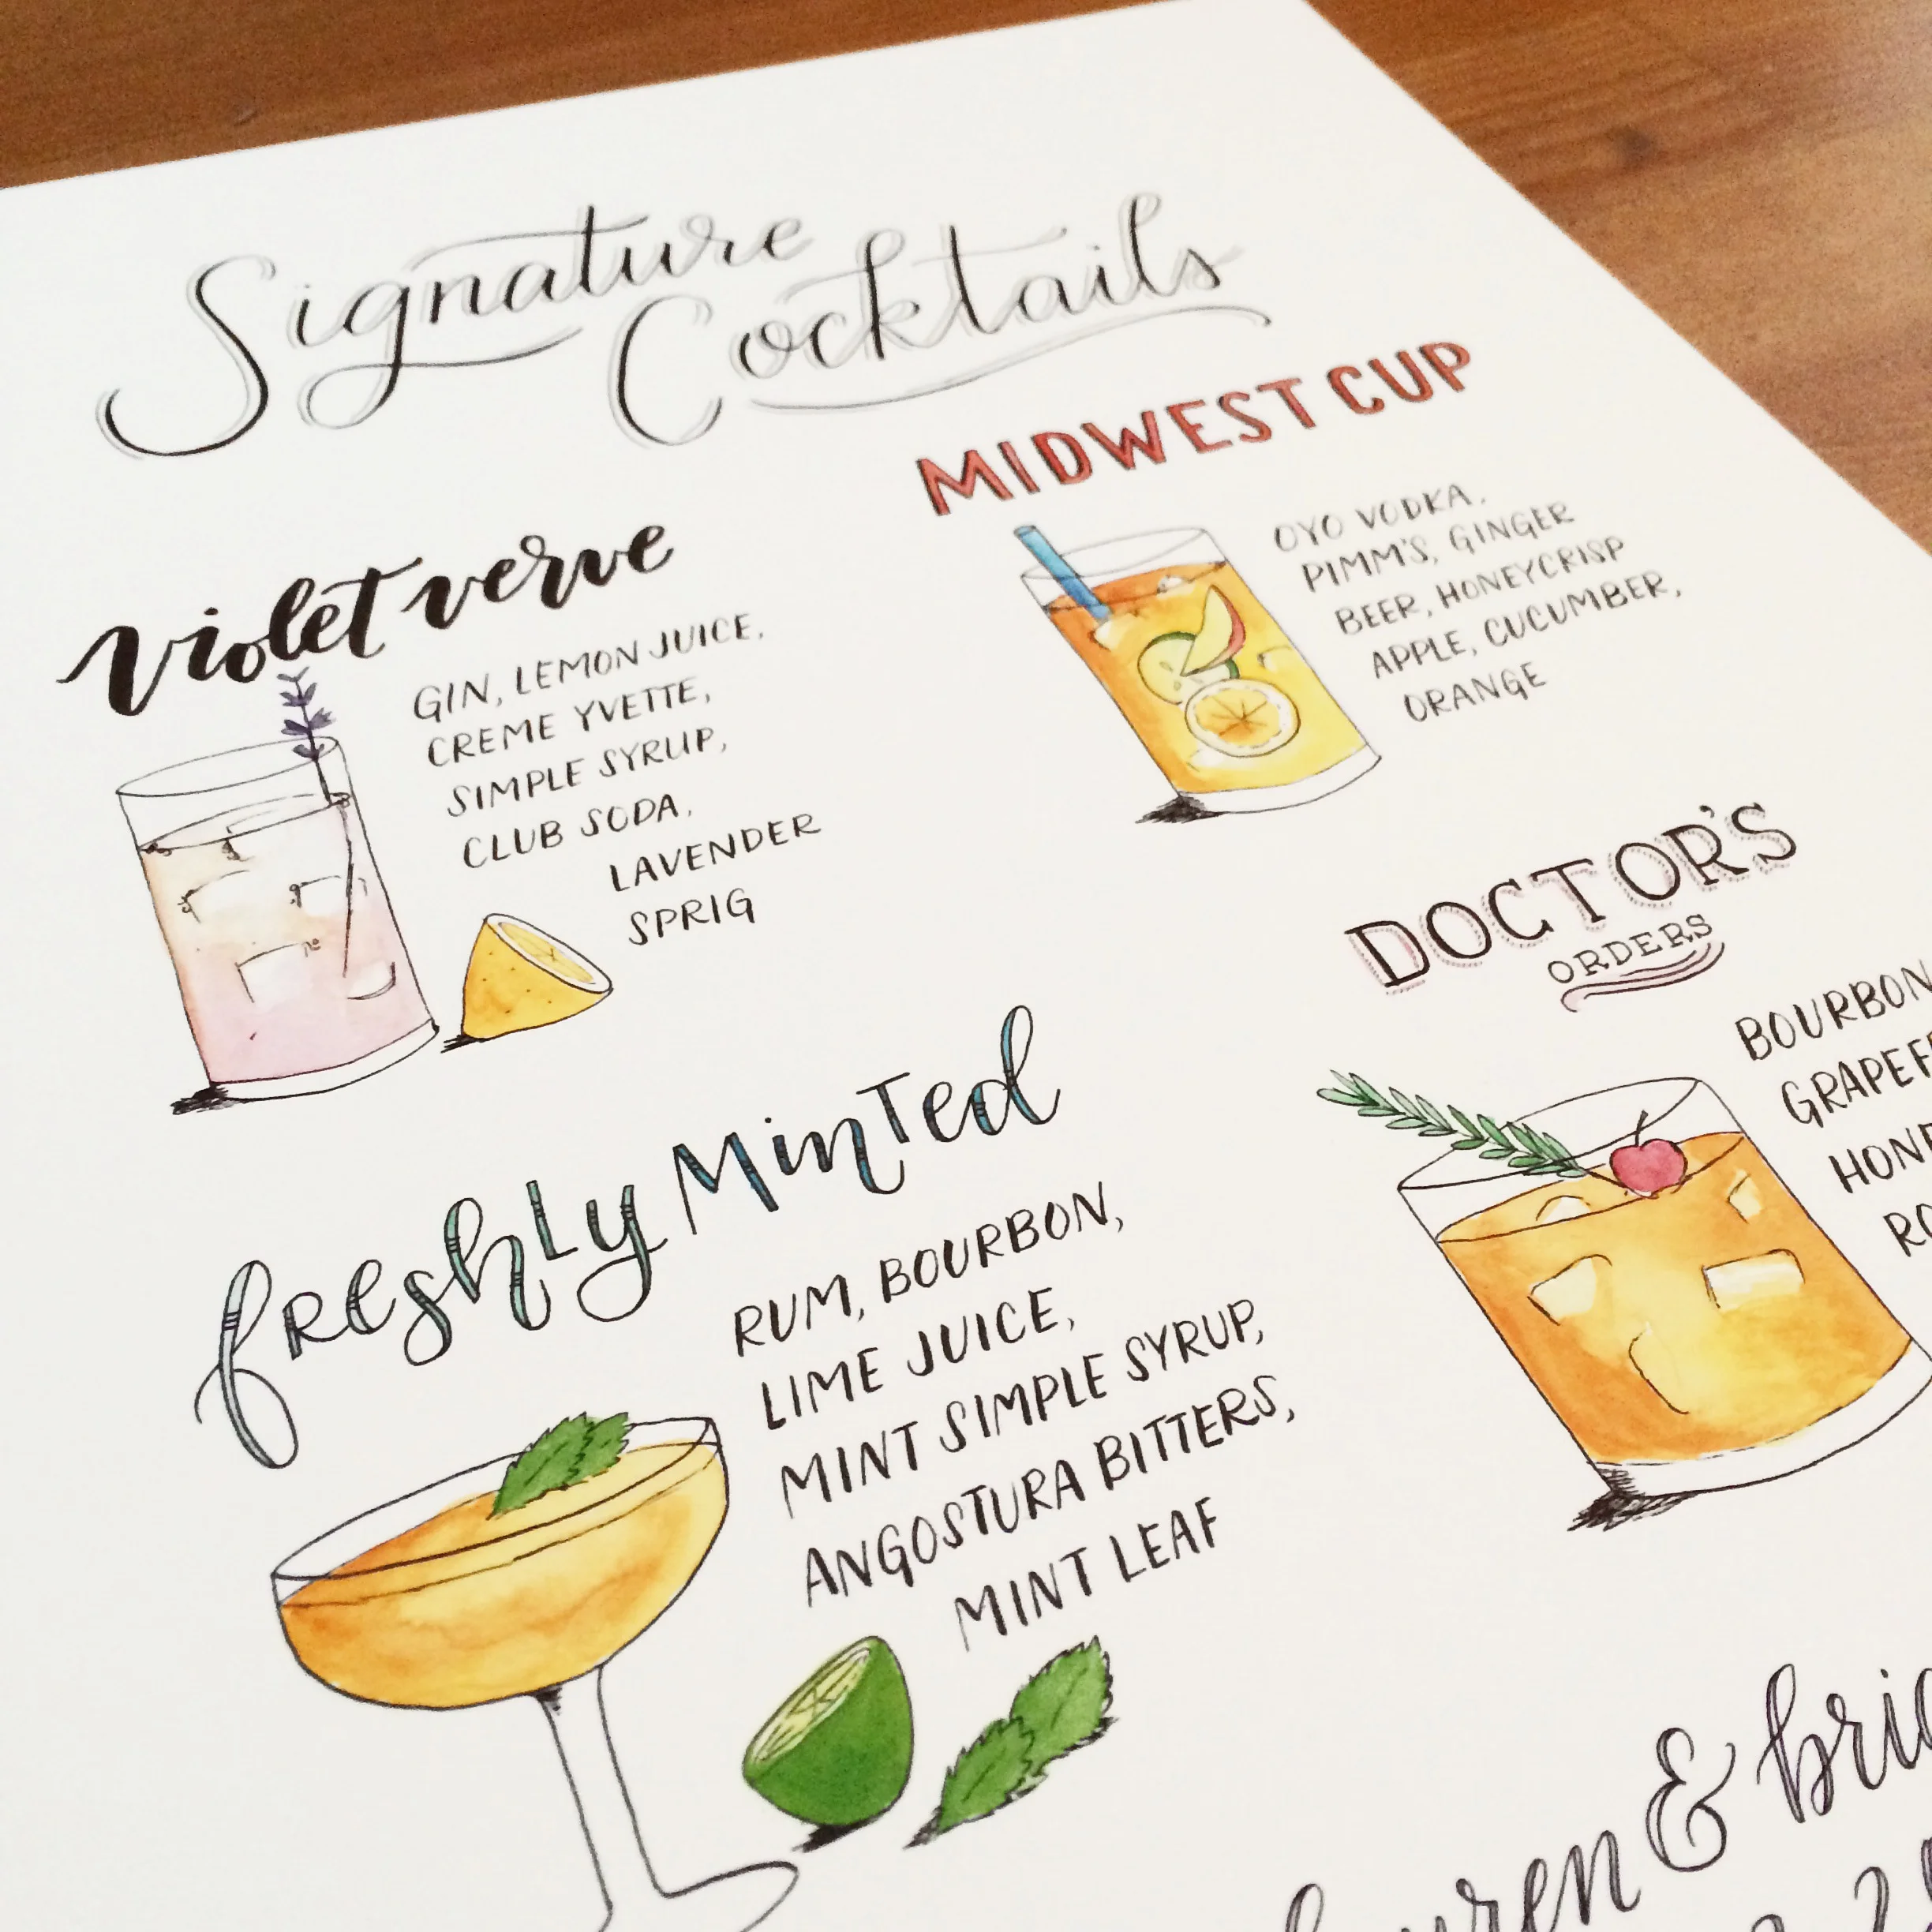 Signature
Cocktails
violet verve
GIN, LEMON JUICE,
CREME YVETTE,
SIMPLE SYRUP,
CLUB SODA,
LAVENDER
SPRIG
MIDWEST CUP
OYO VODKA,
PIMM'S, GINGER
BEER, HONEYCRISP
APPLE, CUCUMBER,
ORANGE
freshly minted
RUM, BOURBON,
LIME JUICE,
MINT SIMPLE SYRUP,
ANGOSTURA BITTERS,
MINT LEAF
DOCTOR'S
ORDERS
BOURBON
&